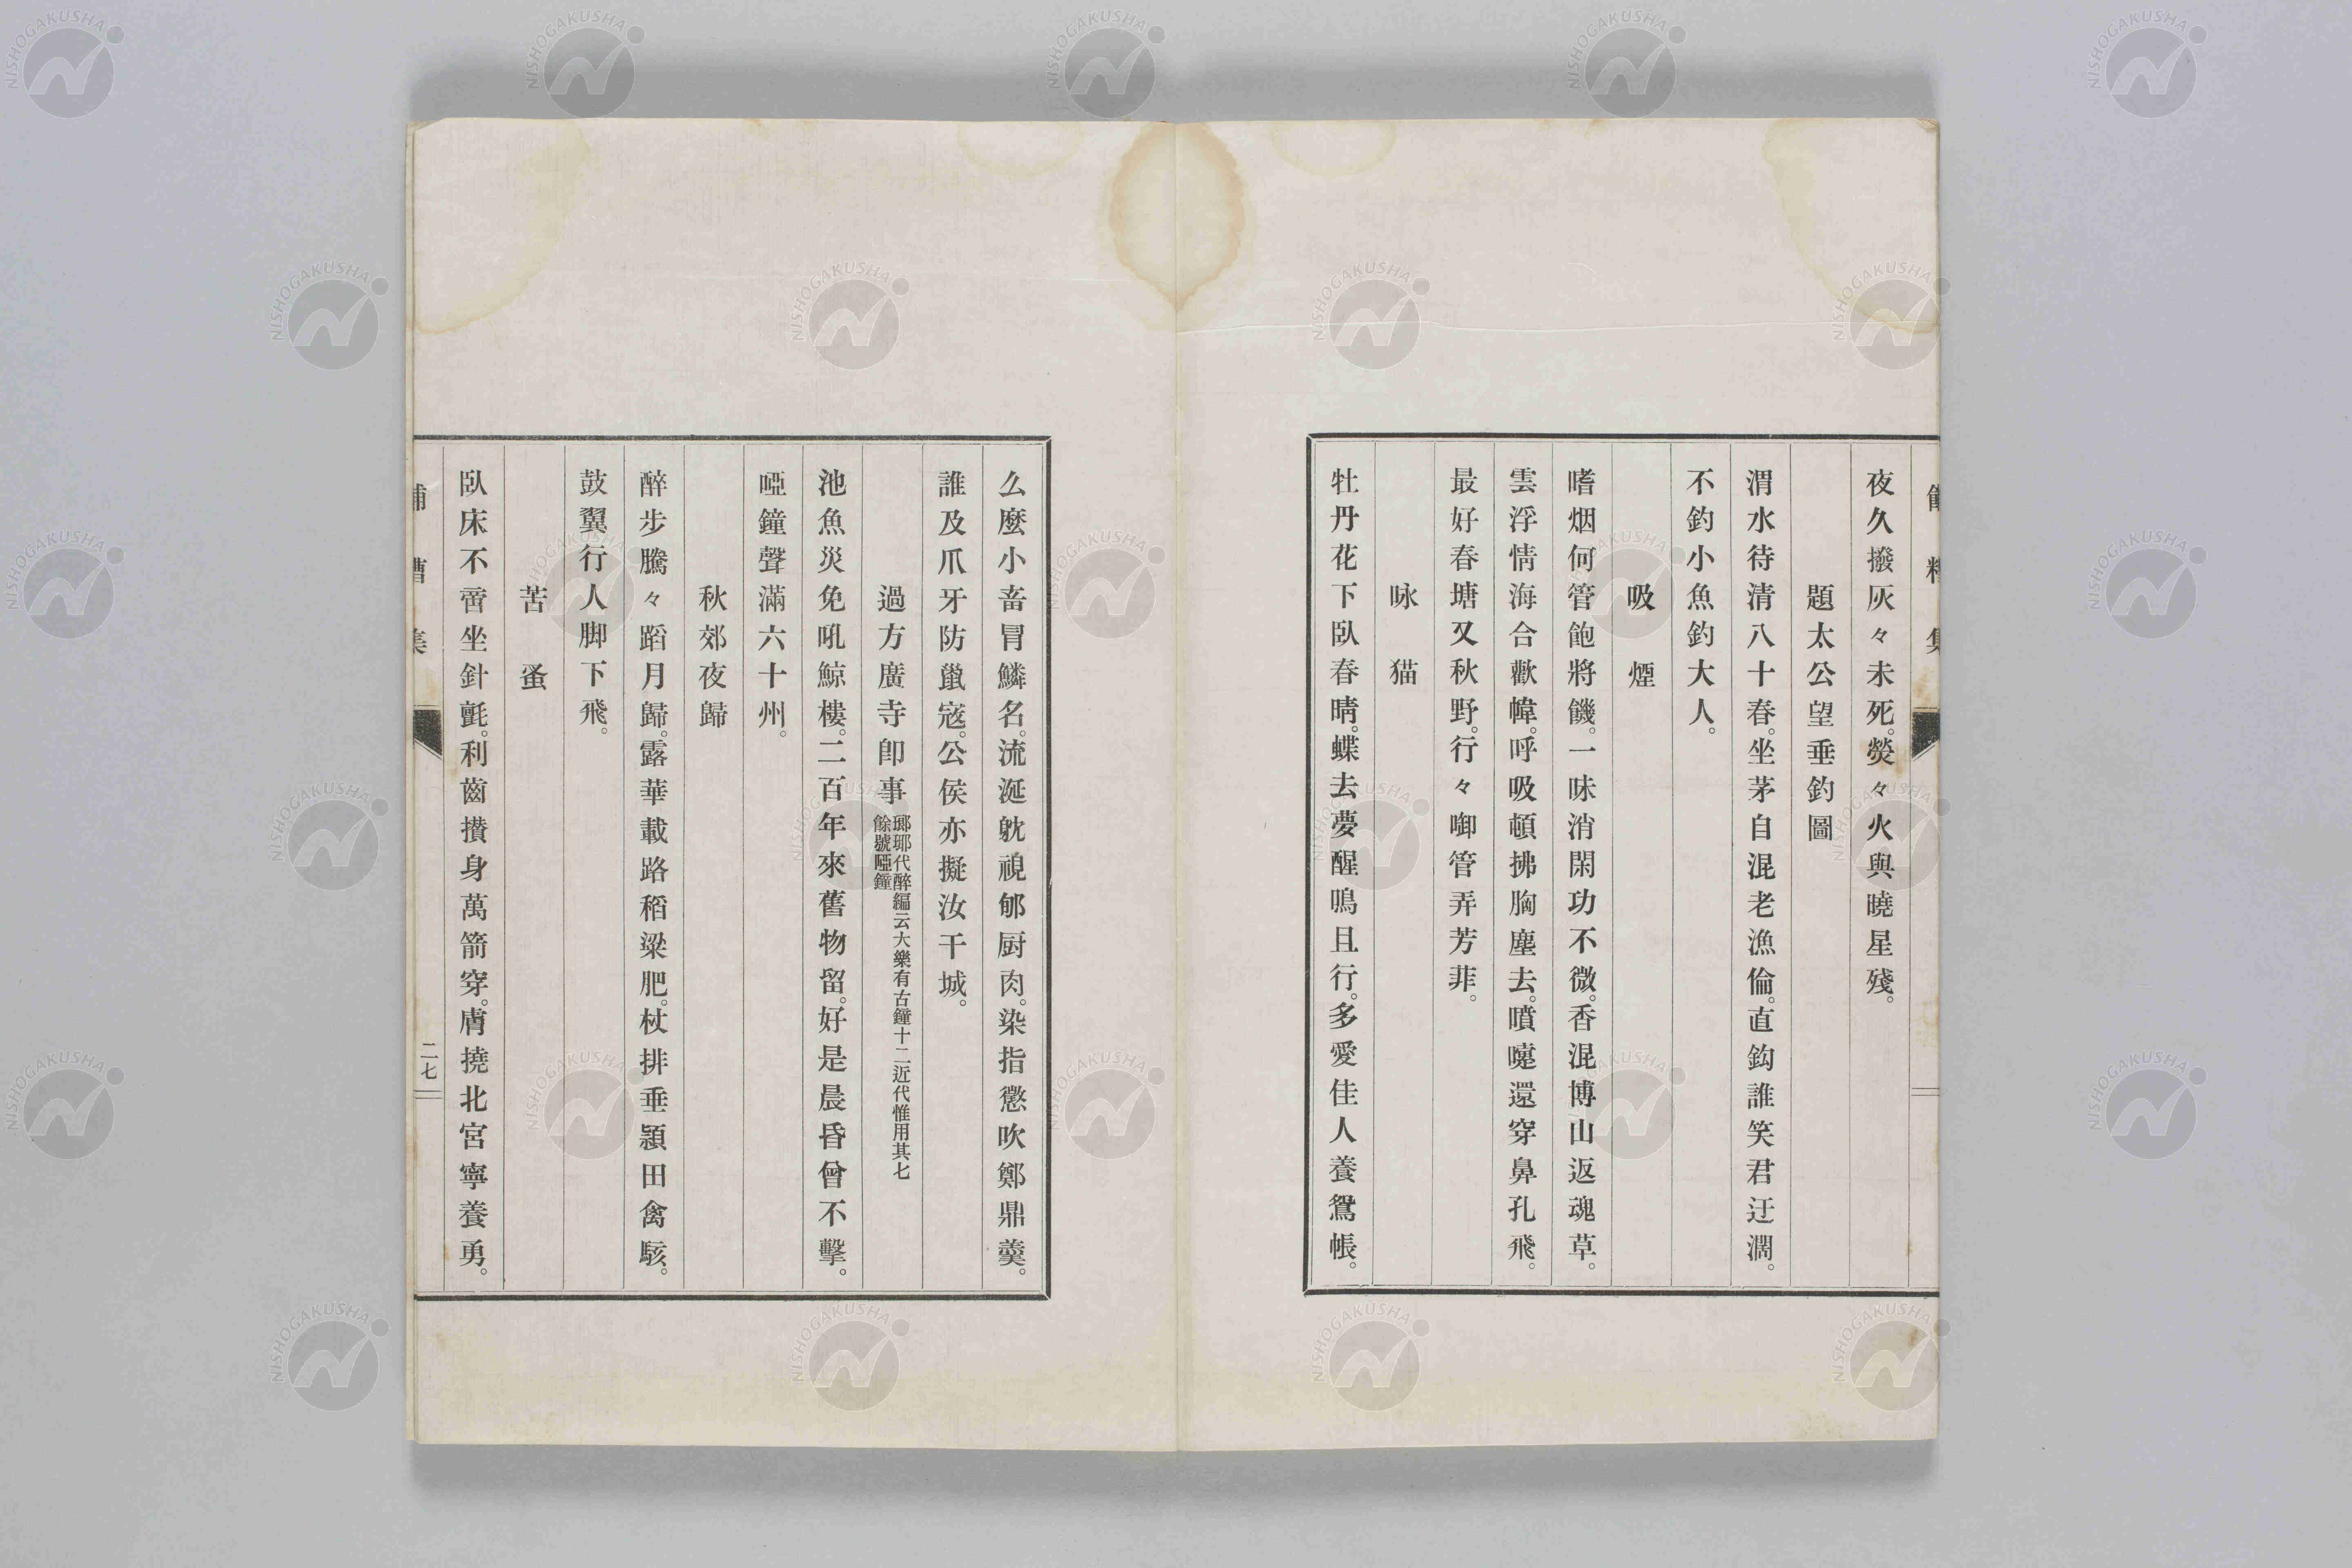 夜久撥灰々未死。熒々火與曉星殘。
題太公望垂釣圖
渭水待清八十春。坐茅自混老漁倫。直鈎誰笑君迂濶。
不釣小魚釣大人。
吸煙
嗜烟何管飽將饑。一味消閑功不微。香混博山返魂草。
雲浮情海合歡幃。呼吸頓拂胸塵去。噴嚏還穿鼻孔飛。
最好春塘又秋野。行々啣管弄芳菲。
咏猫
牡丹花下臥春晴。蝶去夢醒鳴且行。多愛佳人養鴛帳。
么麼小畜冒鱗名。流涎眈視郇厨肉。染指懲吹鄭鼎羹。
誰及爪牙防鼠寇。公侯亦擬汝干城。
過方廣寺卽事
瑯琊代醉編云大樂有古鐘十二近代惟用其七
餘號啞鐘
池魚災免吼鯨樓。二百年來舊物留。好是晨昏曾不擊。
啞鐘聲滿六十州。
秋郊夜歸
醉步騰々蹈月歸。露華載路稻粱肥。杖排垂穎田禽駭。
鼓翼行人脚下飛。
苦蚤
臥床不啻坐針氈。利齒攢身萬箭穿。膚撓北宮寧養勇。
二七
NISHOGAKUSHA